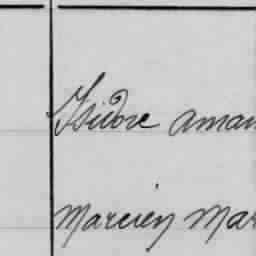 Isidore aman
Marcien Mar